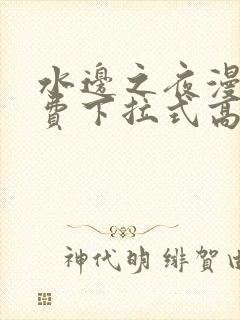 水邊之夜漫
費下拉式高
神代明 绯賀由